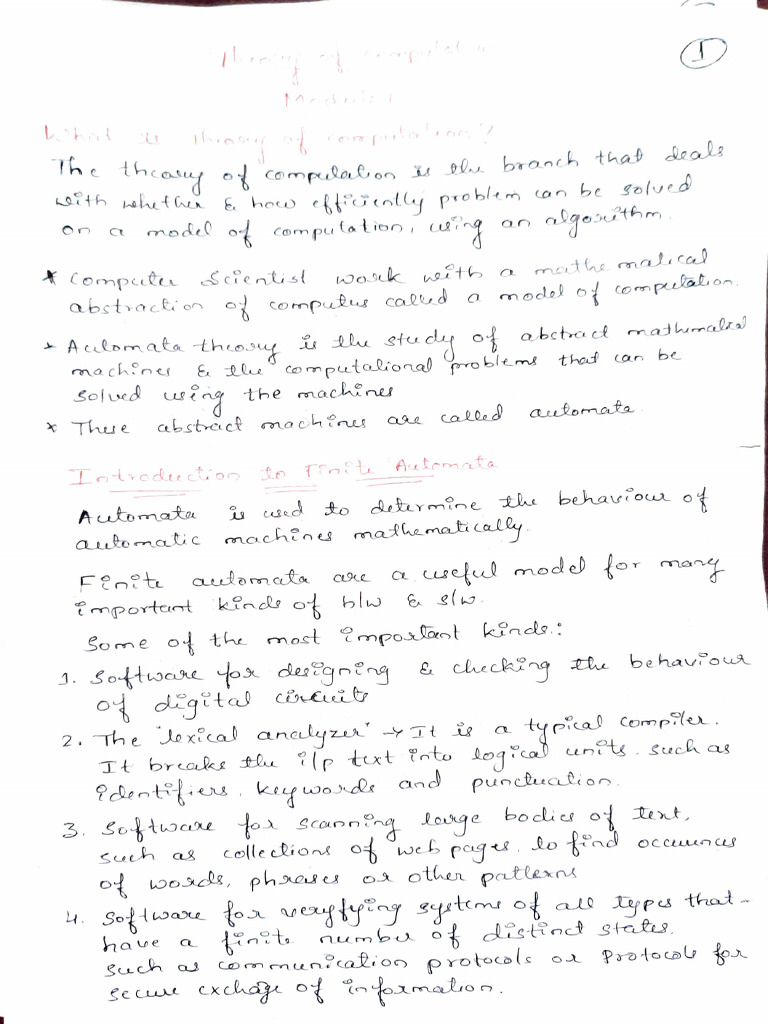 1
Theory of Computation
Module 1
What is Theory of Computation?
The theory of computation is the branch that deals
with whether & how efficiently problem can be solved
on a model of computation, using an algorithm.
* Computer Scientist work with a mathematical
abstraction of computers called a model of computation.
* Automata theory is the study of abstract mathematical
machines & the computational problems that can be
solved using the machines
* These abstract machines are called automata
Introduction to Finite Automata
Automata is used to determine the behaviour of
automatic machines mathematically.
Finite automata are a useful model for many
important kinds of h/w & s/w.
Some of the most important kinds:
1. Software for designing & checking the behaviour
of digital circuits
2. The 'lexical analyzer' → It is a typical compiler.
It breaks the i/p text into logical units, such as
identifiers, keywords and punctuation.
3. Software for scanning large bodies of text,
such as collections of web pages, to find occurences
of words, phrases or other patterns
4. Software for veryfying systems of all types that
have a finite number of distinct states.
such as communication protocols or Protocols for
secure exchage of information.